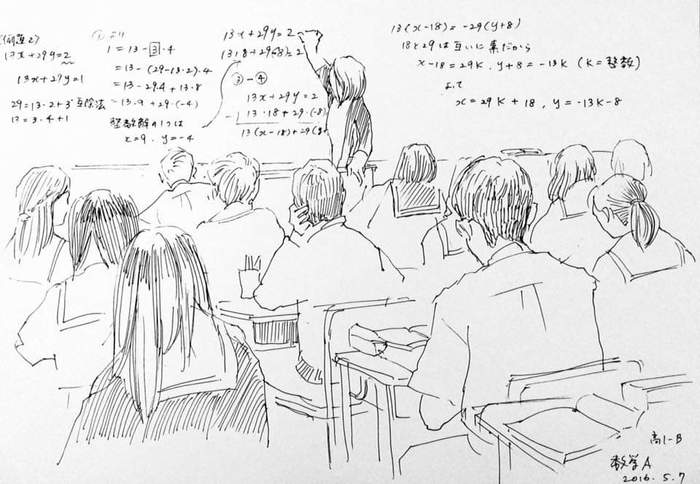 (例題2)
13x+29y=2
13x+29y=1
29=13・2+3 互除法
13=3・4+1
①より
1=13-3・4
=13-(29-13・2)・4
=13-29・4+13・8
=13・9+29・(-4)
整数解の1つは
x=9, y=-4
13x+29y=2
13・18+29・(-8)=2
③-④
13x+29y=2
-) 13・18+29・(-8)
13(x-18)+29(y+
13(x-18)=-29(y+8)
18と29は互いに素だから
x-18=29k, y+8=-13k (k=整数)
よって
x=29k+18, y=-13k-8
高1-B
数学A
2016.5.7